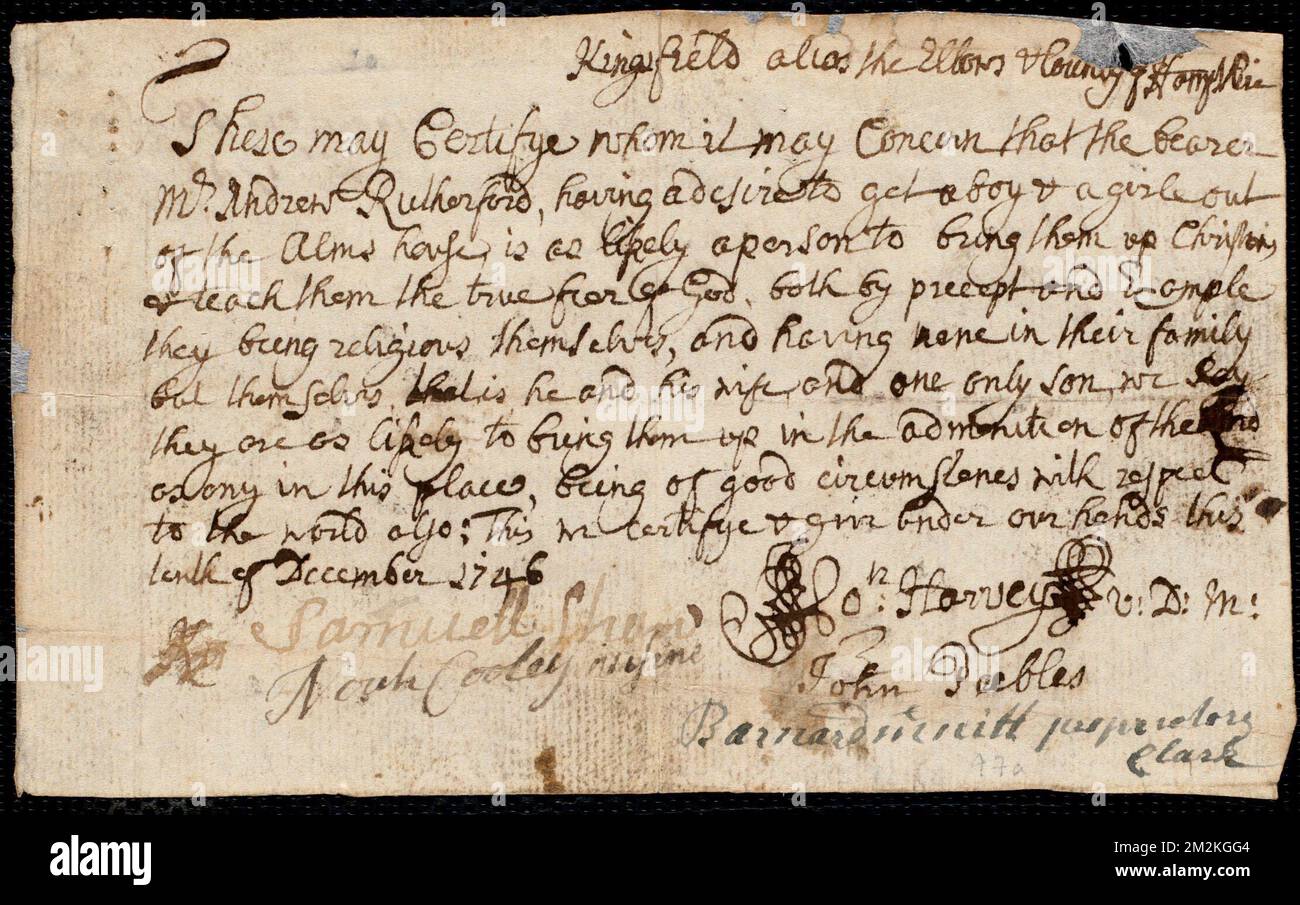 Kingsfield alias the Elbows & County of Hampshire
These may Certifye whom it may Concern that the bearer
Mr. Andrew Rutherford, having a desire to get a boy & a girle out
of the Alms house, is as likely a person to bring them up Christians
& teach them the true fear of God, both by precept and Example
they being religious themselvs, and having none in their family
but themselvs that is he and his wife, and one only son, we say
they are as likely to bring them up in the admonition of the Lord
as any in this place, being of good circumstenes with respect
to the world also: This we certifye & give under our hands this
tenth of December 1746
Jon: Harvey v: D: M:
Samuell Shaw
Noah Cooley
John Peebles
Barnard mcnitt proprietors
Clark
77a
alamy
Image ID: 2M2KGG4
www.alamy.com